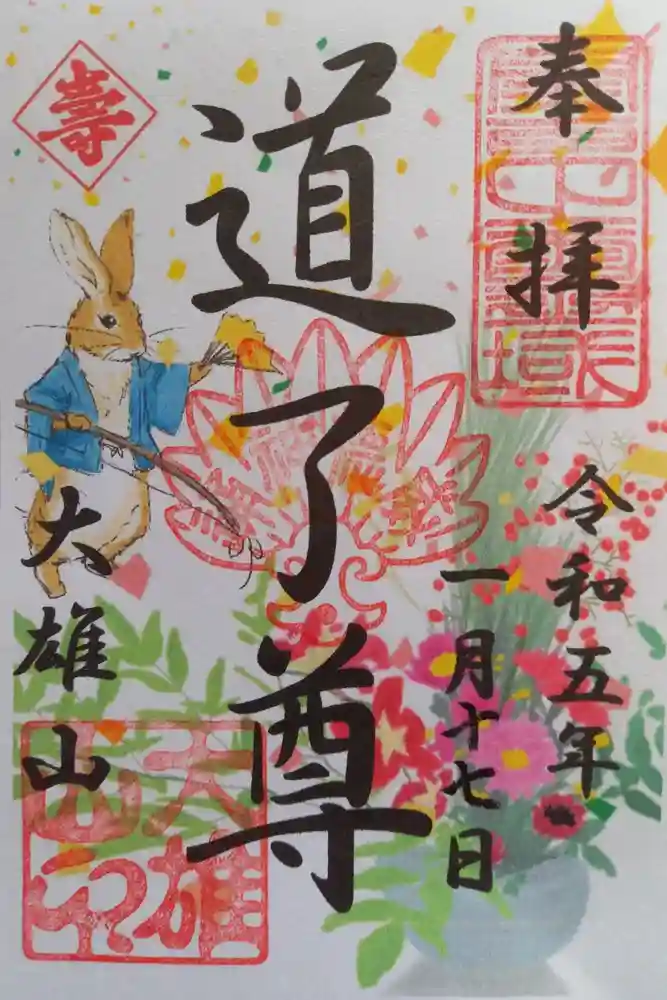 奉拝
令和五年
一月十七日
道了尊
壽
大雄山
大雄山印